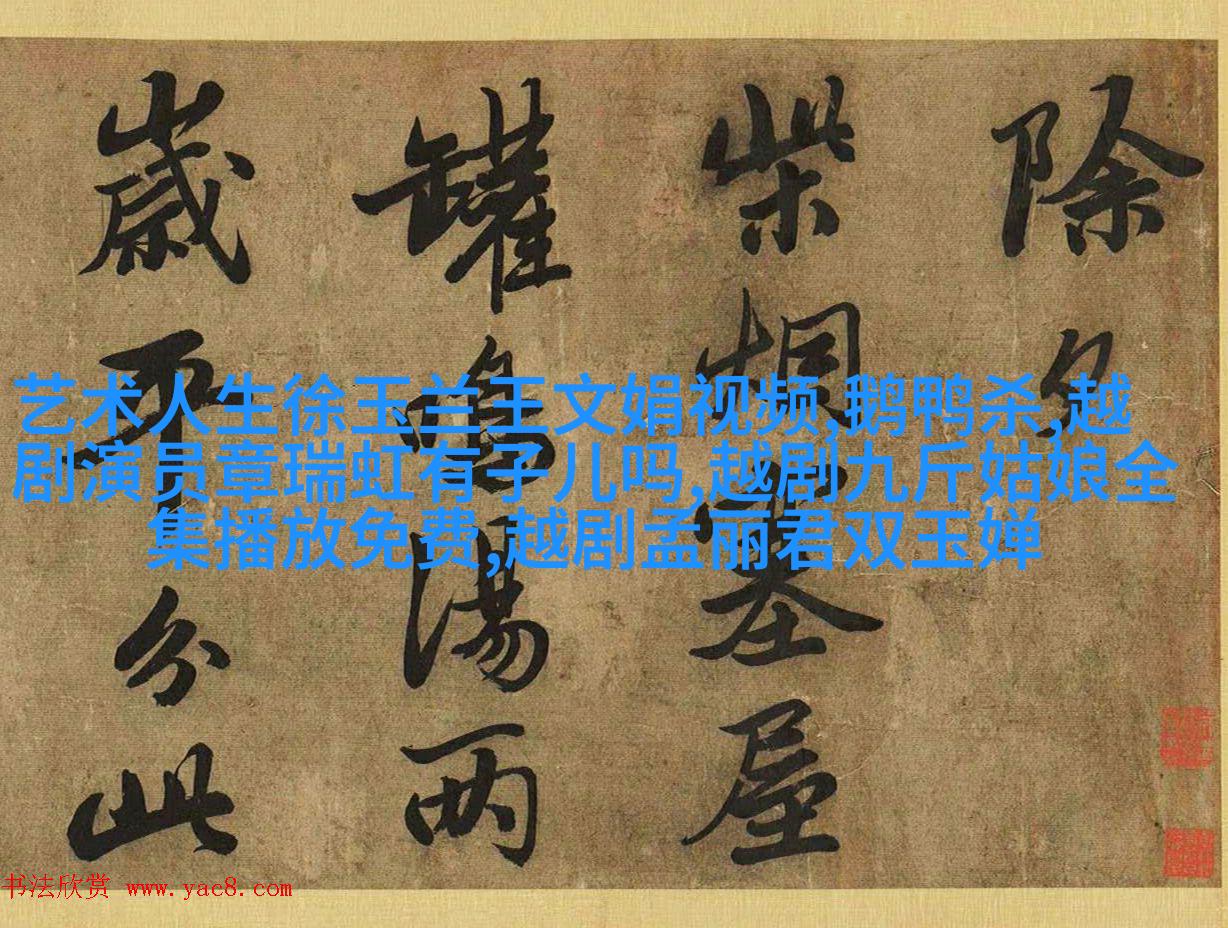 除夕
柴烟塞屋
罐鳴湯兩
歲平分此
艺术人生徐玉兰王文娟视频,鹅鸭杀,越
剧演员章瑞虹有子儿吗,越剧九斤姑娘全
集播放免费,越剧孟丽君双玉婵
书法欣赏 www.yac8.com